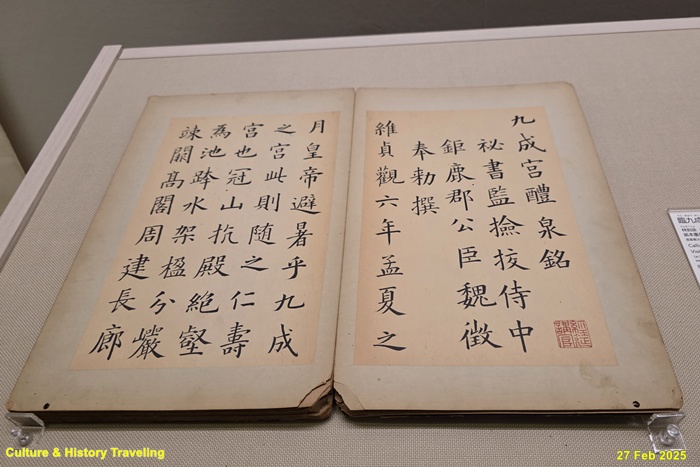 九成宮醴泉銘
秘書監撿挍侍中
鉅鹿郡公臣魏徵
奉勑撰
維貞觀六年孟夏之
月皇帝避暑乎九成
之宮此則随之仁壽
宮也冠山抗殿絕壑
為池跨水架楹分巖
竦闕髙閣周建長廊
臨九成
Culture & History Traveling
27 Feb 2025